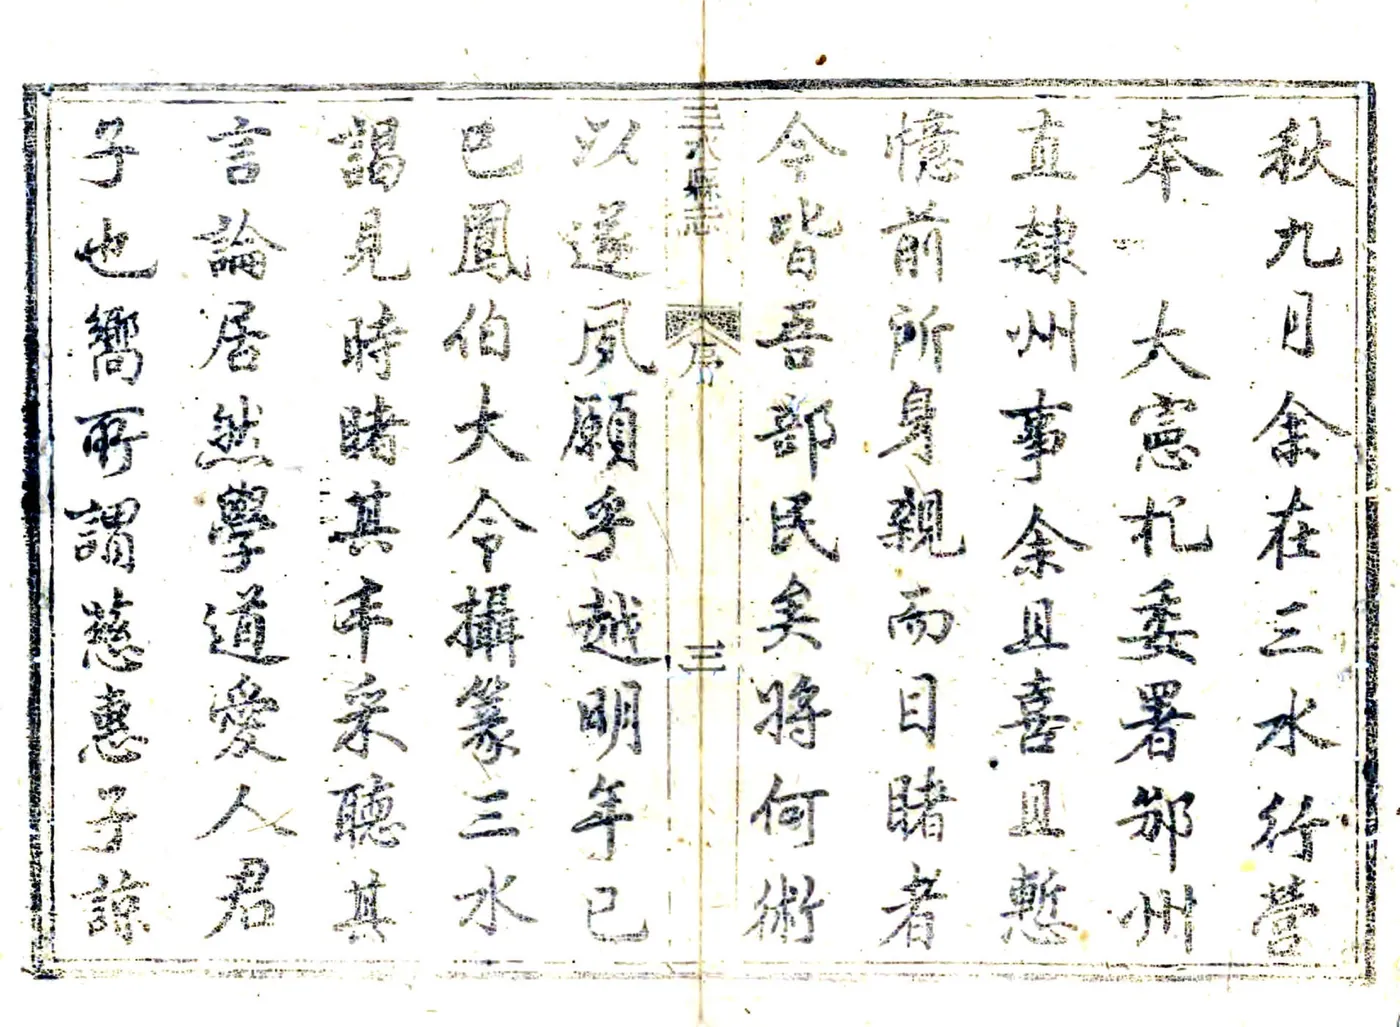 秋九月余在三水行營
奉　大憲札委署邠州
直隸州事余且喜且慙
憶前所身親而目睹者
今皆吾部民矣將何術
三水縣志　序　三
以遂夙願乎越明年己
巳鳳伯大令攝篆三水
謁見時睹其丰采聽其
言論居然學道愛人君
子也嚮所謂慈惠子諒